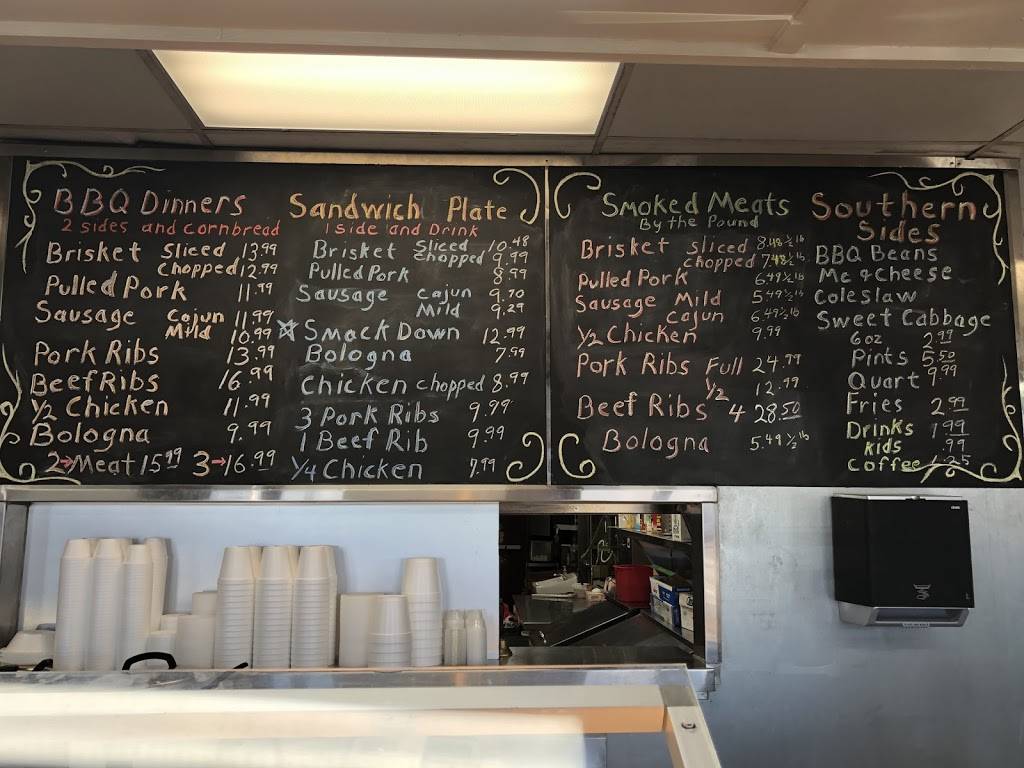 BBQ Dinners
2 sides and cornbread
Brisket Sliced 13.99
chopped 12.99
Pulled Pork 11.99
Sausage Cajun 11.99
Mild 10.99
Pork Ribs 13.99
Beef Ribs 16.99
1/2 Chicken 11.99
Bologna 9.99
2→Meat 15.99 3→16.99
Sandwich Plate
1 side and Drink
Brisket Sliced 10.48
chopped 9.99
Pulled Pork 8.99
Sausage Cajun 9.70
Mild 9.29
☆ Smack Down 12.99
Bologna 7.99
Chicken chopped 8.99
3 Pork Ribs 9.99
1 Beef Rib 9.99
1/4 Chicken 7.99
Smoked Meats
By the Pound
Brisket sliced 8.48 1/2 lb
chopped 7.48 1/2 lb
Pulled Pork 6.49 1/2 lb
Sausage Mild 5.49 1/2 lb
Cajun 6.49 1/2 lb
1/2 Chicken 9.99
Pork Ribs Full 24.99
1/2 12.99
Beef Ribs 4 28.50
Bologna 5.49 1/2 lb
Southern
Sides
BBQ Beans
Mc & Cheese
Coleslaw
Sweet Cabbage
6oz 2.99
Pints 5.50
Quart 9.99
Fries 2.99
Drinks 1.99
kids .99
Coffee 1.25